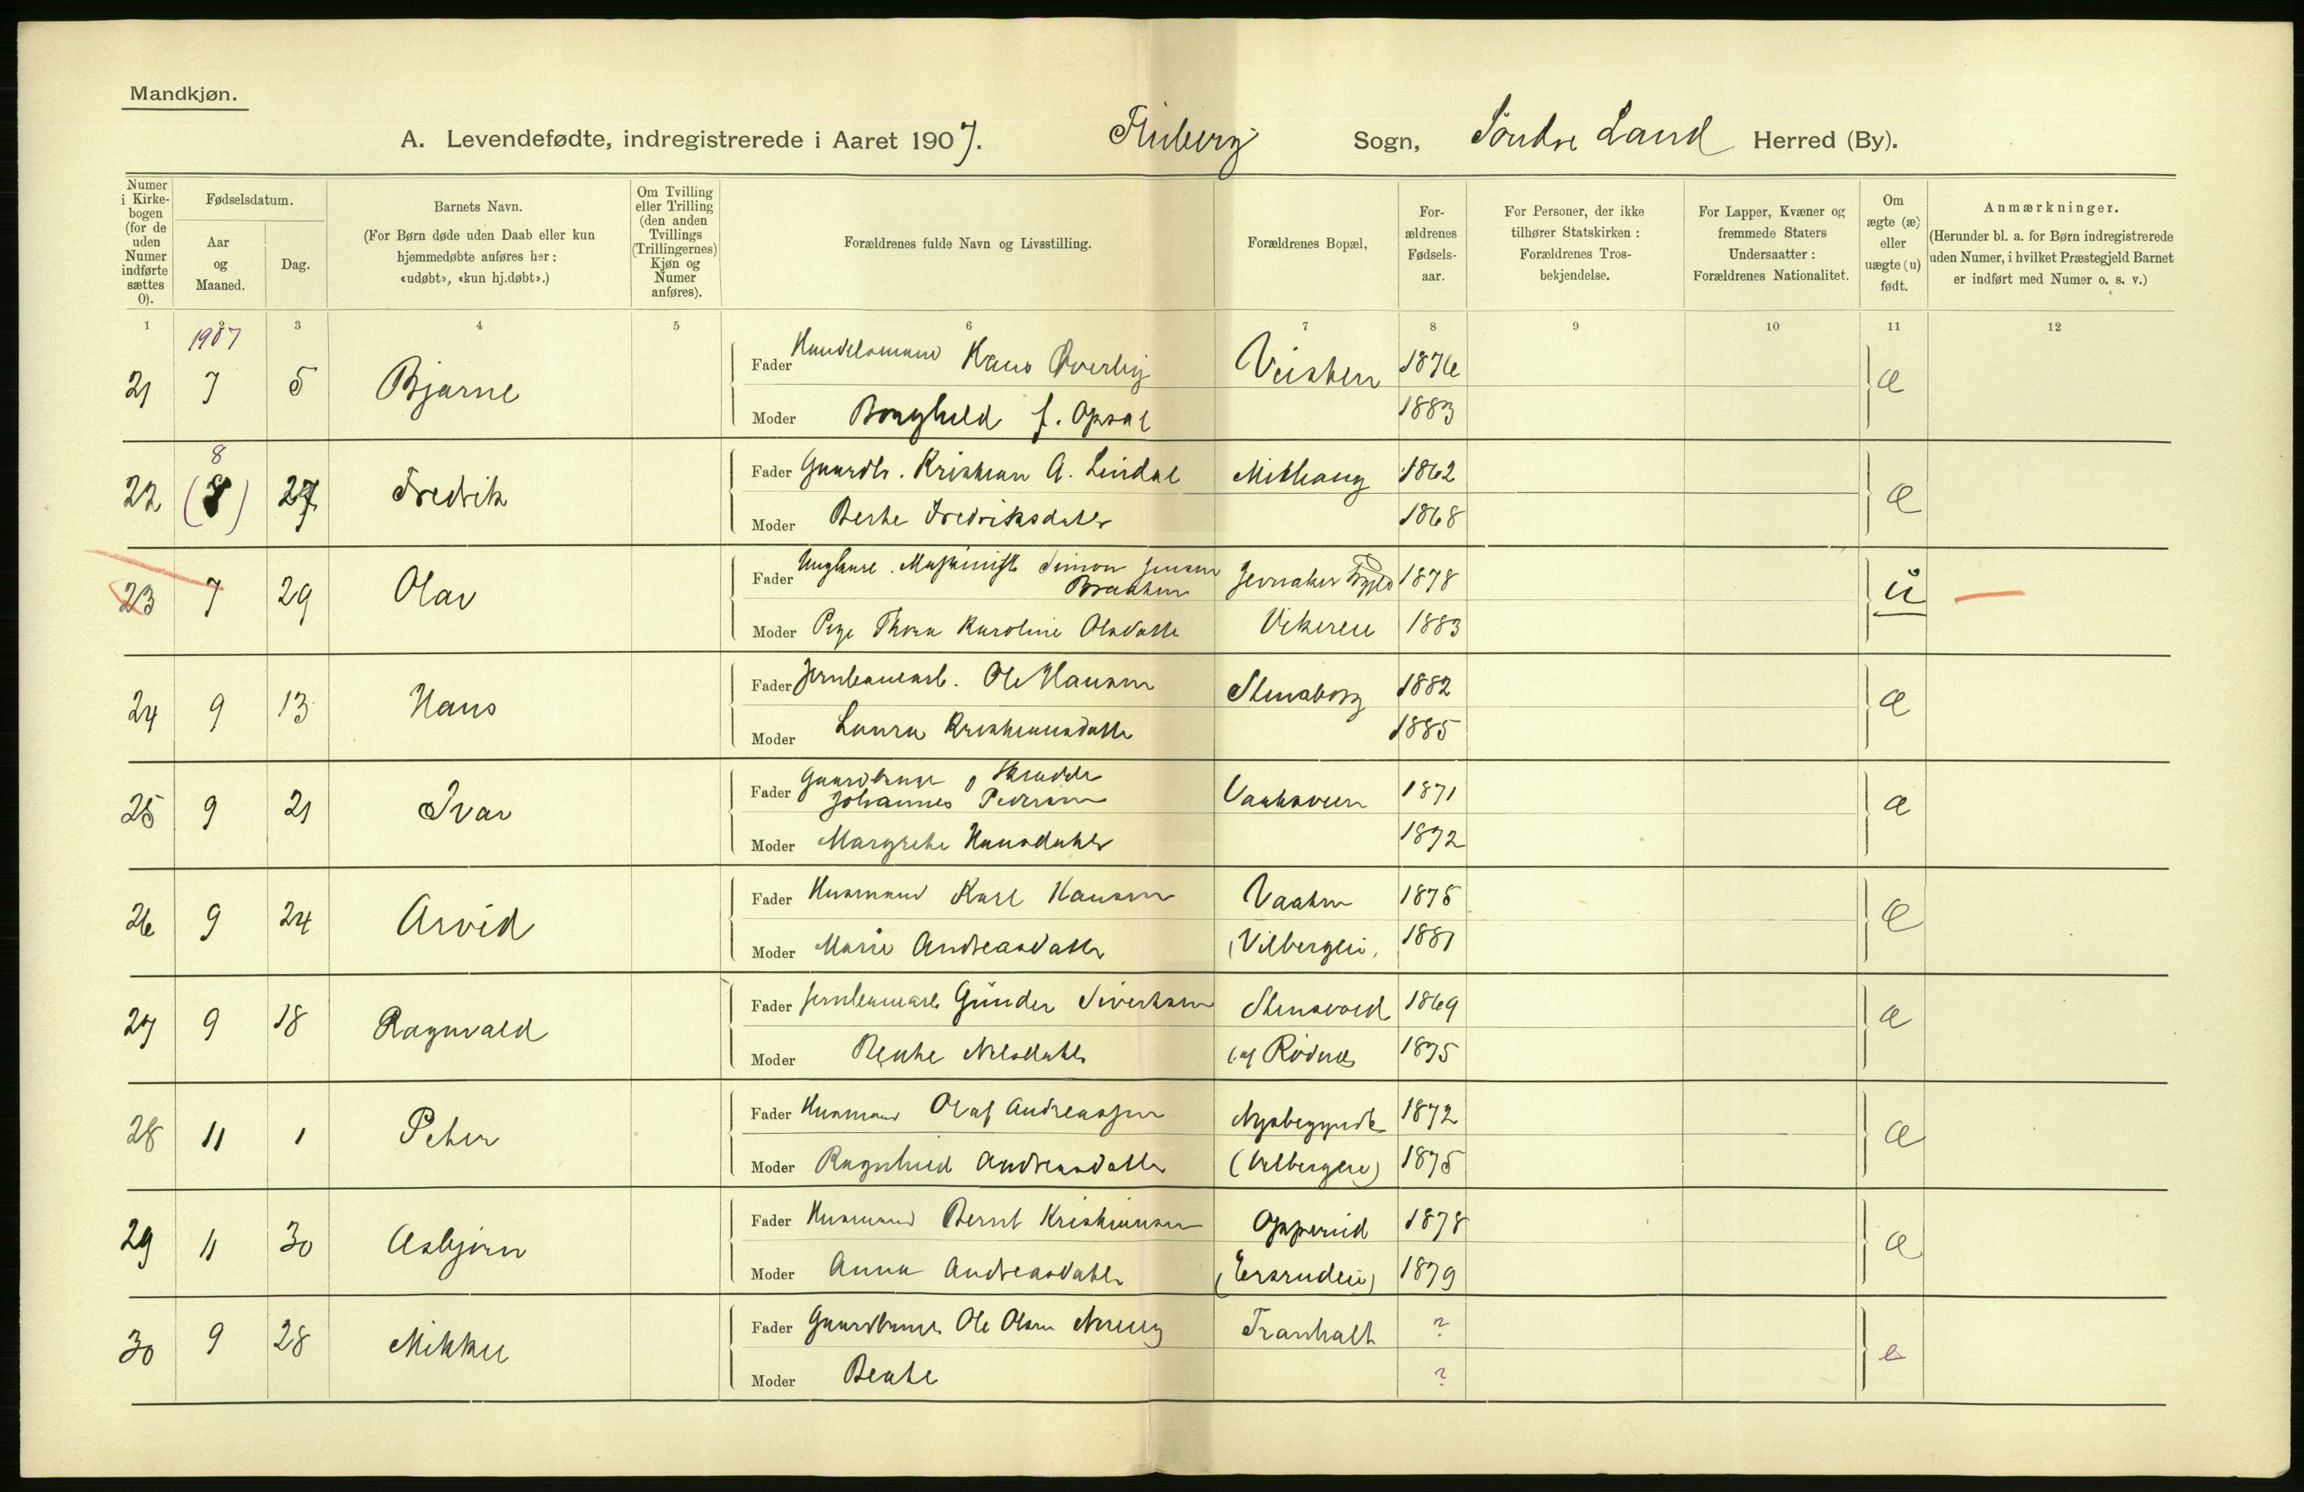 Mandkjøn.
A. Levendefødte, indregistrerede i Aaret 1907. Fluberg Sogn, Søndre Land Herred (By).
Numer i Kirkebogen (for de uden Numer indførte sættes 0).
Fødselsdatum.
Aar og Maaned.
Dag.
Barnets Navn.
(For Børn døde uden Daab eller kun hjemmedøbte anføres her: «udøbt», «kun hj.døbt».)
Om Tvilling eller Trilling (den anden Tvillings (Trillingernes) Kjøn og Numer anføres).
Forældrenes fulde Navn og Livsstilling.
Forældrenes Bopæl,
For-ældrenes Fødsels-aar.
For Personer, der ikke tilhører Statskirken: Forældrenes Tros-bekjendelse.
For Lapper, Kvæner og fremmede Staters Undersaatter: Forældrenes Nationalitet.
Om ægte (æ) eller uægte (u) født.
Anmærkninger.
(Herunder bl. a. for Børn indregistrerede uden Numer, i hvilket Præstegjeld Barnet er indført med Numer o. s. v.)
1 2 3 4 5 6 7 8 9 10 11 12
1907
21 7 5 Bjarne Fader Handelsmand Hans Øverby 1876 æ
Moder Borghild f. Opsal 1883
8
22 27 Fredrik Fader Gaardb. Kristian A. Lindal 1862 æ
Moder Berte Fredriksdatter 1868
23 7 29 Olav Fader Ungkarl. Maskinist Simon Jensen Braaten Jevnaker 1878 u
Moder Pige Thora Karoline Olsdatter 1883
24 9 13 Hans Fader Jernbanearb. Ole Hansen Stensborg 1882 æ
Moder Laura Kristiansdatter 1885
25 9 21 Ivar Fader Gaardbruger Johannes Pedersen 1871 æ
Moder Margrethe Hansdatter 1872
26 9 24 Arvid Fader Husmand Karl Hansen Vaaten 1875 æ
Moder Marie Andreasdatter (Vilbergeie) 1881
27 9 18 Ragnvald Fader Jernbanearb Gunder Sivertsen Stensvold 1869 æ
Moder Beate Nilsdatter 1875
28 11 1 Peter Fader Husmand Olaf Andreassen 1872 æ
Moder Ragnhild Andreasdatter (Vilbergeie) 1875
29 11 30 Asbjørn Fader Husmand Bernt Kristiansen Opperud 1878 æ
Moder Anna Andreasdatter 1879
30 9 28 Mikkel Fader Gaardbruger Ole Olsen Tranhalt ? e
Moder Beate ?